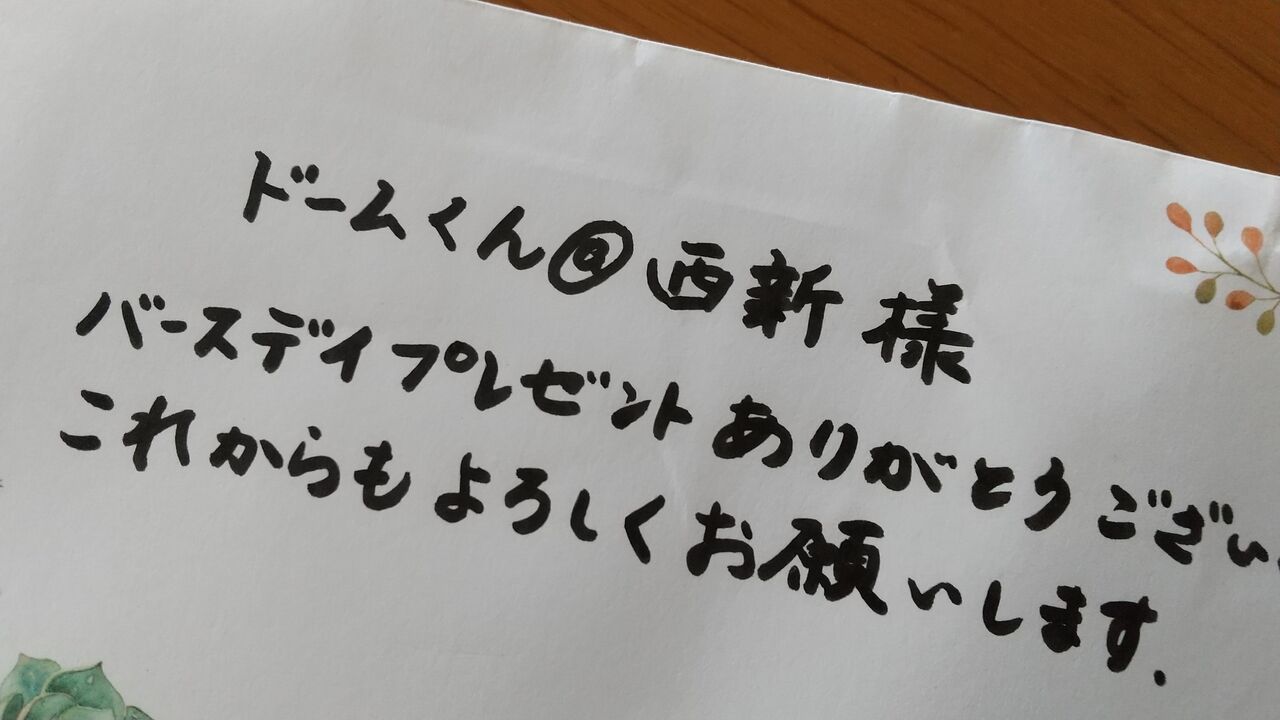 ドームくん@西新 様
バースデイプレゼントありがとうござい
これからもよろしくお願いします.